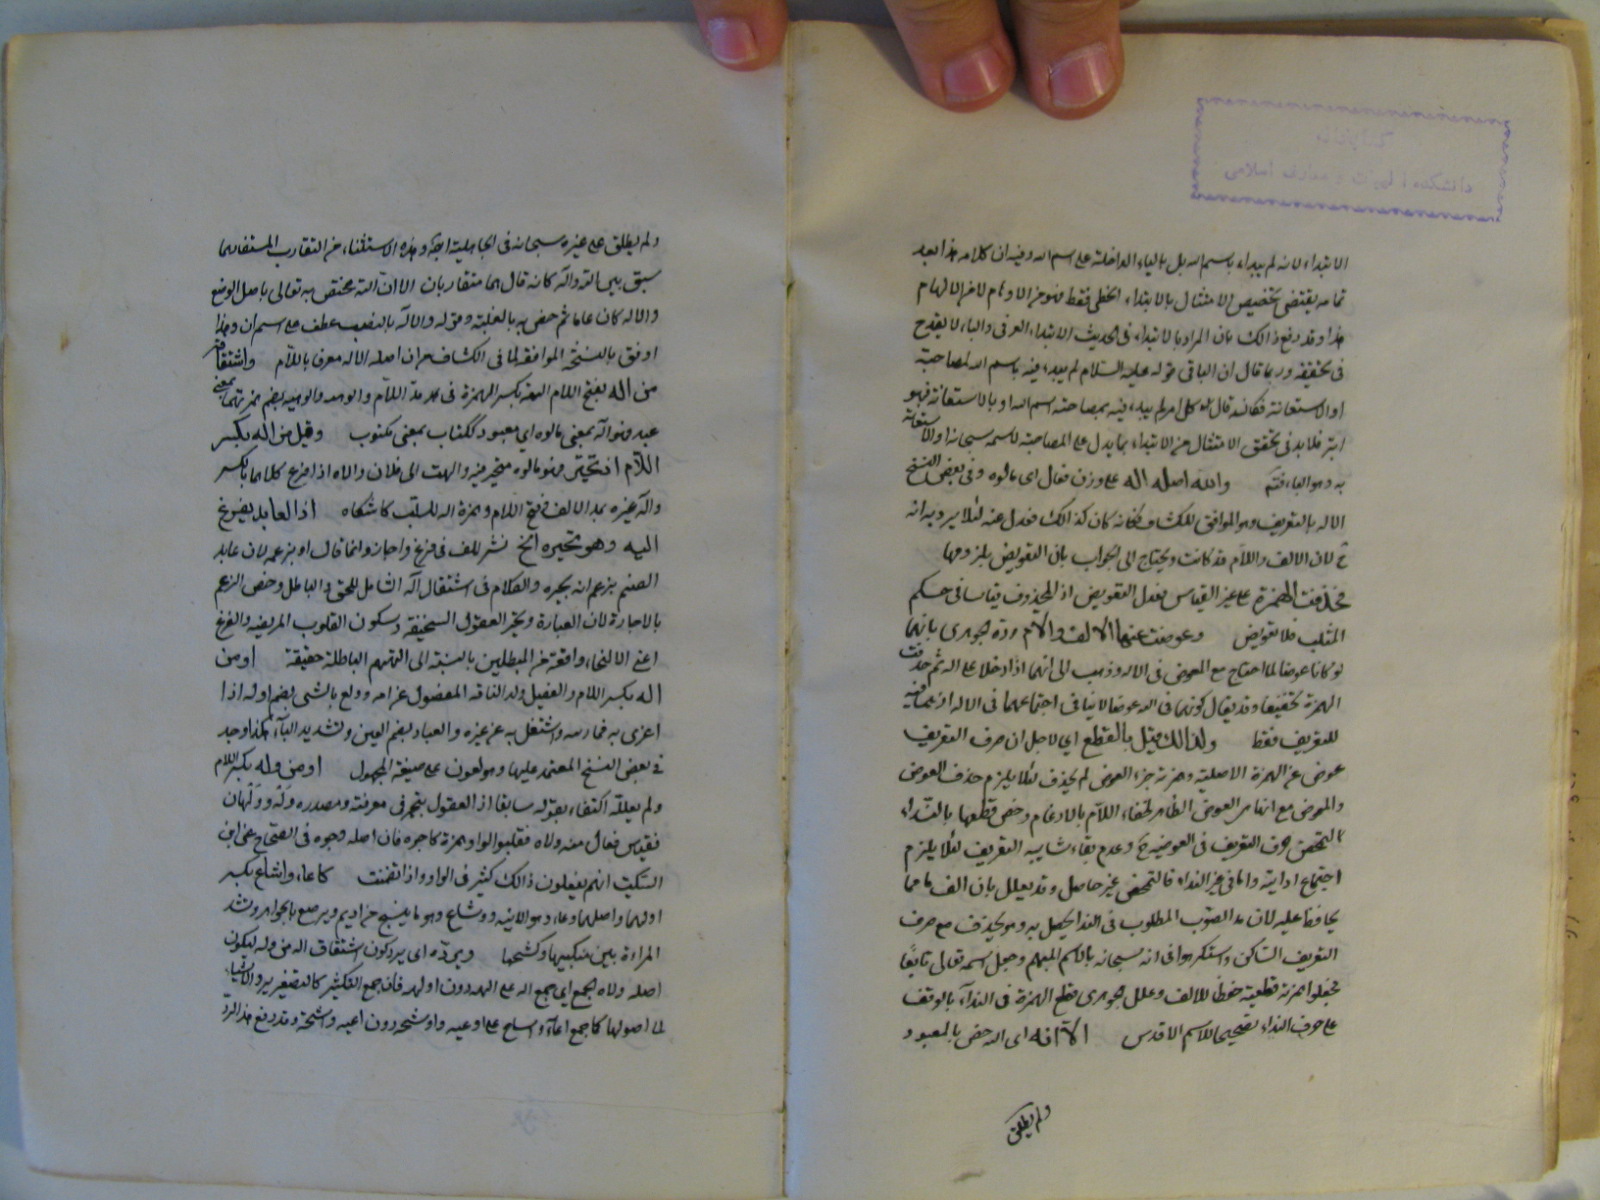 كتابخانه
دانشكده الهيات و معارف اسلامى
الابتداء لانه لم يبداء باسم الله بل بالباء الداخلة على اسم الله وفيه ان كلامه هذا بعد
تمامه يقتضى تخصيص الامتثال بالابتداء الخطى فقط
هذا وقد دفع ذالك بان المراد بالابتداء فى الحديث الابتداء العرفى والباء لا يقدح
فى تحققه وربما قال ان الباء فى قوله عليه السلام لم يبدء فيه باسم الله للمصاحبة
او الاستعانة فكانه قال كل امر لم يبدء فيه بمصاحبة اسم الله او بالاستعانة فهو
ابتر فلا بد فى تحقق الامتثال من الابتداء بما يدل على المصاحبة لاسمه سبحانه او الاستعانة
به وهو الباء فتم والله اصله اله على وزن فعال اى مالوه وفى بعض النسخ
الاله بالتعريف وهو الموافق للكشاف فكانه كان كذالك فعدل عنه لئلا يرد انه
ح لان الالف واللام قد كانت ويحتاج الى الجواب بان التعويض بلزومها
فحذفت الهمزة على غير القياس بدليل التعويض اذ المحذوف قياسا فى حكم
المثبت فلا تعوض وعوضت عنها الالف واللام ورده جوهرى بانهما
لو كانا عوضا لما اجتمع مع المعوض فى الاله وذهب الى انهما اذا دخلا على اله ثم حذفت
الهمزة تخفيفا وقد يقال كونهما فى الله عوضا لا ينافى اجتماعهما فى الاله اذ هما فيه
للتعريف فقط ولذالك قيل بالقطع اى لاجل ان حرف التعريف
عوض عن الهمزة الاصلية وهمزته جزء العوض لم يحذف لئلا يلزم حذف العوض
والمعوض مع العوض الظاهر لخفاء اللام بالادغام وخص قطعها بالنداء
لتمحض حرف التعريف فى العوضية ح وعدم بقاء شايبة التعريف لئلا يلزم
اجتماع اداتيه واما فى غير النداء فالتمحض غير حاصل وقد يعلل بان الف يا مما
يحافظ عليه لان مد الصوت المطلوب فى النداء يحصل به وهو يحذف مع حرف
التعريف الساكن واستكرهوا فى انه سبحانه بالاسم المبهم وجعل اسمه تعالى تابعًا
فجعلوا همزته قطعية حفظا للالف وعلل جوهرى قطع الهمزة فى النداء بالوقف
على حرف النداء تفخيما للاسم الاقدس الا انه اى الله خص بالمعبود
ولم يطلق
ولم يطلق على غيره سبحانه فى الجاهلية ايضا وهذه الاستثناء من التقارب المستفاد مما
سبق بين الله واله كانه قال هما متقاربان الا ان الله مختص به تعالى باصل الوضع
والاله كان عاما ثم خص به بالغلبة وقوله والاله بالنصب عطف على اسم ان وهذا
اوفق بالنسخة الموافقة لما فى الكشاف من ان اصله الاله معرفا باللام واشتقاقه
من اله بفتح اللام الهة بكسر الهمزة فى مد اللام والوهة والوهية بضم همزتهما بمعنى
عبد فهو اله بمعنى مالوه اى معبود ككتاب بمعنى مكتوب وقيل من اله بكسر
اللام اذ تحير فهو مالوه متحير فيه والهت الى فلان واله اذا فزع كلاهما بكسر
واله غيره بمد الالف وفتح اللام وهمزة اله للسلب كاشكاه اذ العابد يفزع
اليه وهو يجيره الخ نشر للف فى فزع واجاز وانما قال او بزعمه لان عابد
الصنم يزعم انه يجيره والكلام فى اشتقاق اله الشامل للحق والباطل وخص الزعم
بالاجارة لان العبارة وتحير العقول السخيفة وسكون القلوب المريضة والفزع
اعنى الالتجاء واقعة من المبطلين بالنسبة الى الهتهم الباطلة حقيقة او من
اله بكسر اللام والفصيل ولد الناقة المفصول عن امه وولع بالشى بضم اوله اذا
اغرى به فمارسه واشتغل به عن غيره والعباد بضم العين وتشديد الباء هكذا وجد
فى بعض النسخ المعتمد عليها ومولعون على صيغة المجهول او من وله بكسر اللام
ولم يعلله اكتفاء بقوله سابقا اذ العقول يتحير فى معرفته ومصدره وَلَه وولهان
فقياس فعال منه ولاه فقلبوا الواو همزة كاجوه فان اصله وجوه فى الصحاح عن ابن
السكيت انهم يفعلون ذالك كثيرا فى الواو اذا انضمت كاعاء واشاح بكسر
اولهما واصلهما وعاء وهو الانية ووشاح وهو ما ينسج من اديم ويرصع بالجواهر وتشد
المراة بين منكبيها وكشحها ويرده اى يرد كون اشتقاق اله من وله ليكون
اصله ولاه الجمع اى جمع اله على الهه دون اولهه فان جمع التكثير كالتصغير يرد الاشياء
لما اصولها كما جمع اعاء واشاح على اوعيه واوشحه دون اعيه واشحة وقد دفع هذا الرد